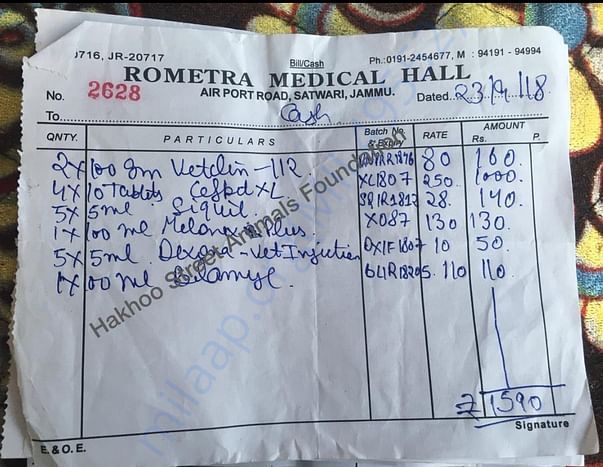 0716, JR-20717
Bill/Cash
Ph.:0191-2454677, M : 94191 - 94994
ROMETRA MEDICAL HALL
AIR PORT ROAD, SATWARI, JAMMU.
No. 2628
Dated 23/9/18
To Cash
QNTY. PARTICULARS Batch No. & Expiry RATE AMOUNT Rs. P.
2x 100 gm Vetclin-112 80 160
4x 10 Tablets Cefpd XL XL1807 250 1000
5x 5ml Siquil 28 140
1x 100 ml Melonex Plus X087 130 130
5x 5ml Dexona-Vet Injection DX1F1807 10 50
1x 100 ml 110 110
1590
Signature
E. & O. E.
Hakhoo Street Animals Foundation
milaap.org